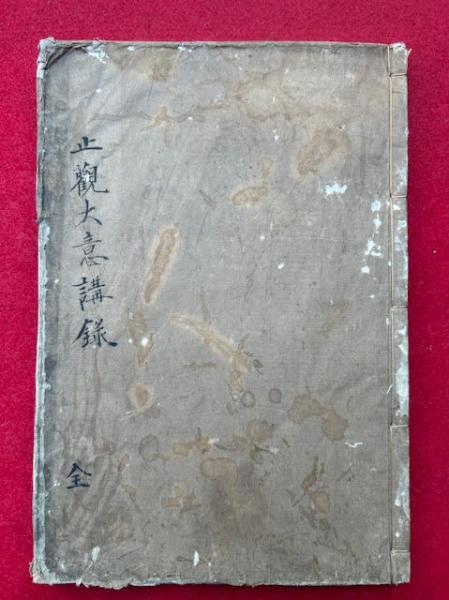 止觀大意講録
全